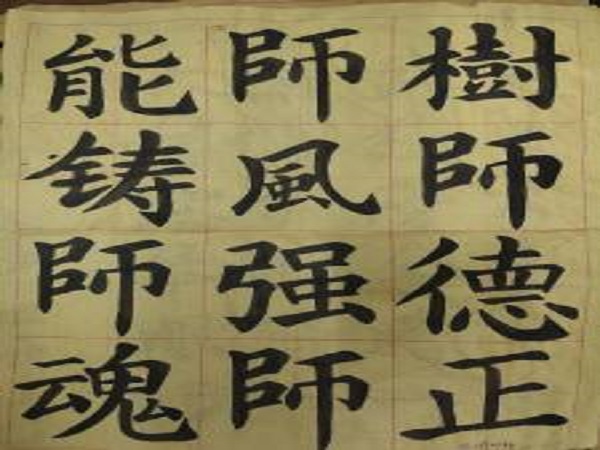 樹師德正
師風强師
能铸師魂